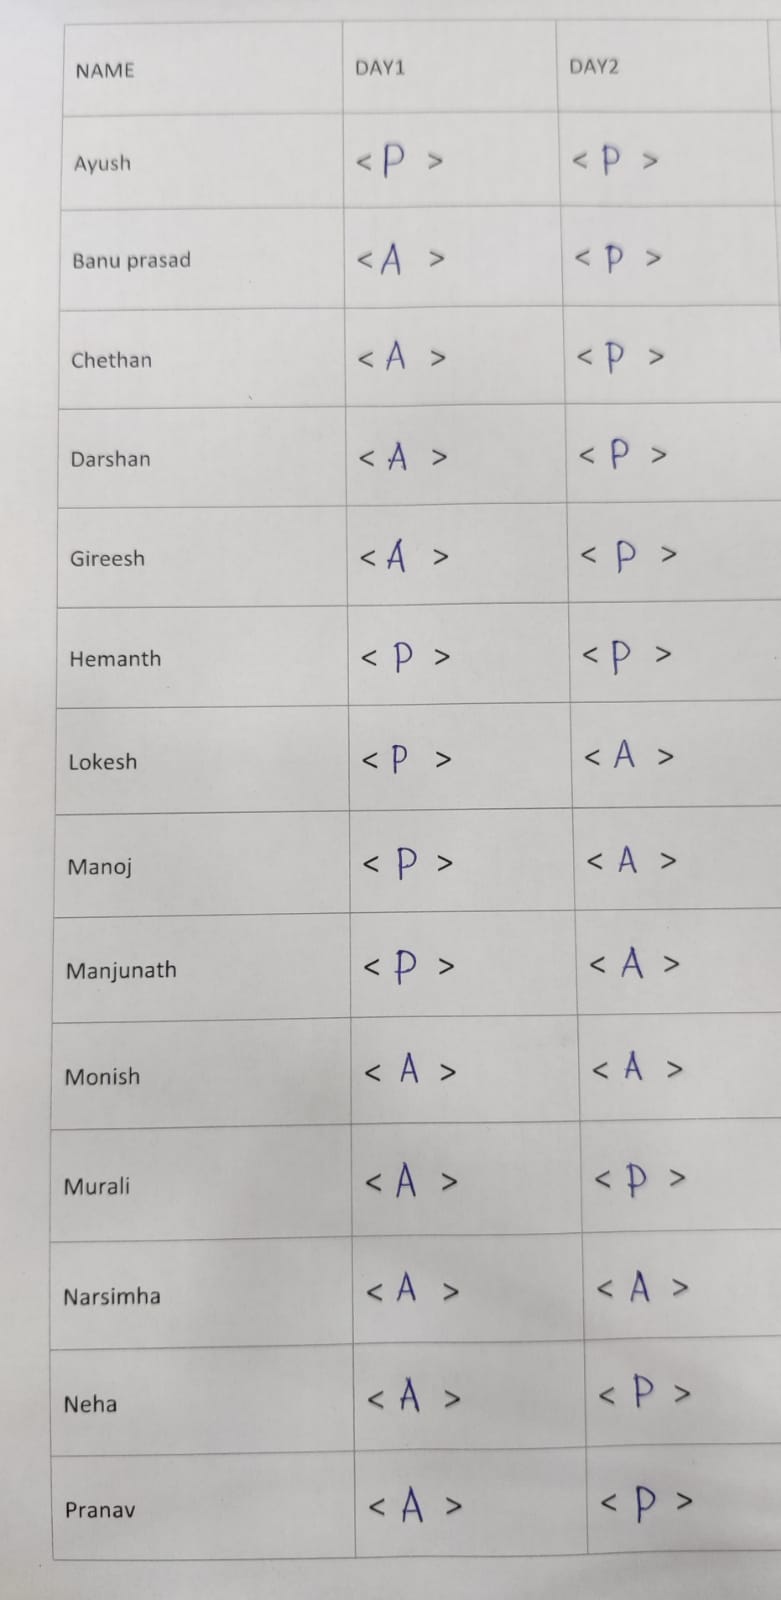 NAME DAY1 DAY2
Ayush < P > < P >
Banu prasad < A > < P >
Chethan < A > < P >
Darshan < A > < P >
Gireesh < A > < P >
Hemanth < P > < P >
Lokesh < P > < A >
Manoj < P > < A >
Manjunath < P > < A >
Monish < A > < A >
Murali < A > < P >
Narsimha < A > < A >
Neha < A > < P >
Pranav < A > < P >